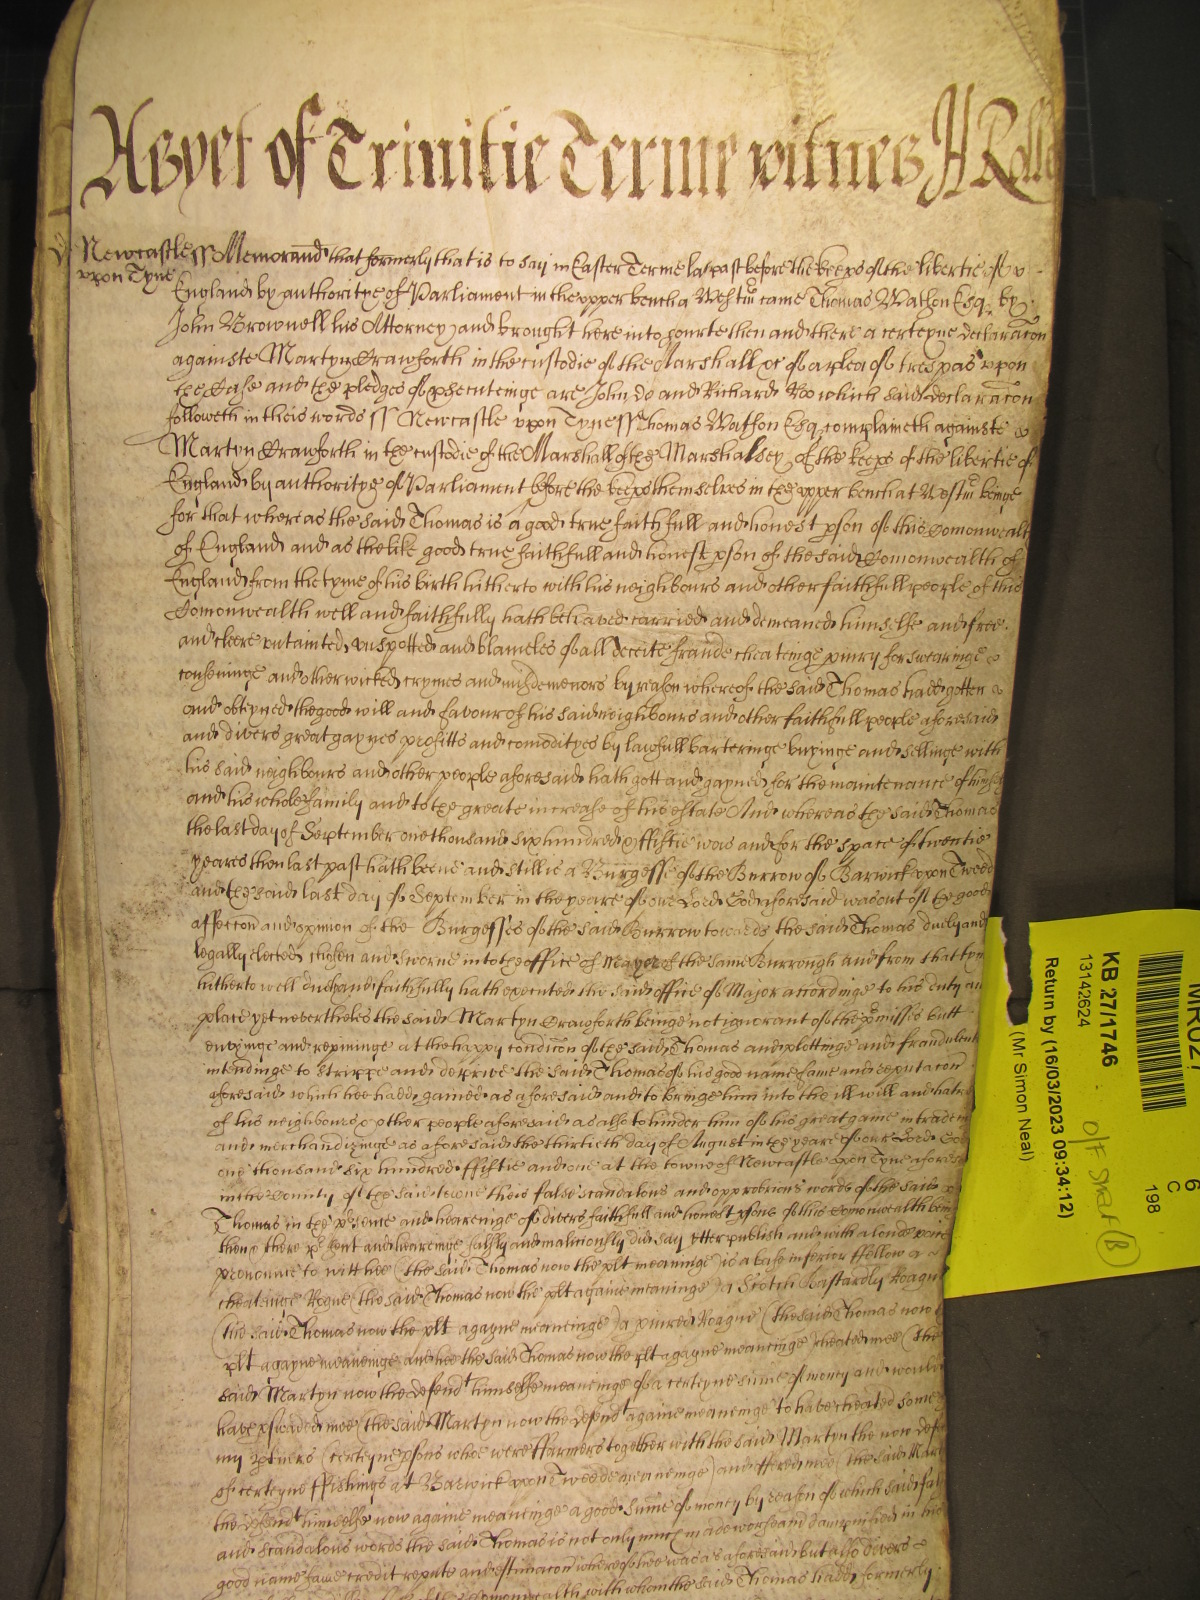 As yet of Trinitie Terme witnes H Rolle
Newcastle ss Memorand that formerly that is to say in Easter Terme last past before the keeps of the libertie of
upon Tyne
England by authoritye of Parliament in the upper bench at Westm came Thomas Watson Esq by
John Brownell his Attorney and brought here into Courte then and there a certeyne declaracon
againste Martyn Crawforth in the custodie of the Marshall &c of a plea of trespas upon
the Case and the pledges of psecuteinge are John do and Richard Roo which said declaracon
followeth in theis words ss Newcastle upon Tyne ss Thomas Watson Esq complaineth againste
Martyn Crawforth in the custodie of the Marshall of the Marshalsey of the keeps of the libertie of
England by authoritye of Parliament before the keeps themselves in the upper bench at Westm beinge
for that whereas the said Thomas is a good true faithfull and honest pson of this Comonwealth
of England and as the like good true faithfull and honest pson of the said Comonwealth of
England from the tyme of his birth hitherto with his neighbours and other faithfull people of this
Comonwealth well and faithfully hath behaved carried and demeaned himselfe and free
and cleere untainted unspotted and blameles of all deceite fraude cheateinge piury forswearinge
couseninge and other wicked crymes and misdemenors by reason whereof the said Thomas hadd gotten
and obteyned the good will and favour of his said neighbours and other faithfull people aforesaid
and divers great gaynes profitts and comodityes by lawfull barteringe buyinge and sellinge with
his said neighbours and other people aforesaid hath gott and gayned for the maintenance of himselfe
and his whole family and to the greate increase of his estate And whereas the said Thomas
the last day of September one thousand six hundred & fiftie was and for the space of twentie
yeares then last past hath beene and still is a Burgesse of the Burrow of Barwick upon Tweed
and the said last day of September in the yeare of our Lord God aforesaid was out of the good
affeccon and opinion of the Burgesses of the said Burrow towards the said Thomas duely and
legally elected chosen and sworne into the office of Mayor of the same Burrough and from that tyme
hitherto well duely and faithfully hath executed the said office of Major accordinge to his duty and
place yet nevertheles the said Martyn Crawforth beinge not ignorant of the pmisses butt
envyinge and repininge at the happy condicon of the said Thomas and plottinge and fraudulently
intendinge to strippe and deprive the said Thomas of his good name fame and reputacon
aforesaid which hee hadd gained as aforesaid and to bringe him into the ill will and hatred
of his neighbours & other people aforesaid as alsoe to hinder him of his great gaine in tradeinge
and merchandizinge as aforesaid the thirtieth day of August in the yeare of our Lord God
one thousand six hundred fiftie and one at the towne of Newcastle upon Tyne aforesaid
in the County of the said towne theis false scandalous and opprobrious words of the said
Thomas in the psence and heareinge of divers faithfull and honest psons of this Comonwealth beinge
then & there psent and heareinge falsly and maliciously did say utter publish and with a loude voice
pronounce to witt hee (the said Thomas now the plt meaninge) is a base inferior ffellow a
cheateinge Rogue (the said Thomas now the plt againe meaninge) a Scotch Bastardly Roague
(the said Thomas now the plt agayne meaneinge) a piured Roague (the said Thomas now
plt agayne meaneinge and hee the said Thomas now the plt agayne meaneinge) cheated mee (the
said Martyn now the defendt himselfe meaneinge of a certeyne sume of money and would
have pswaded mee (the said Martyn now the defendt againe meaneinge to have cheated some
my ptners (certeyne psons whoe were ffarmers together with the said Martyn the now def
of certeyne ffishings at Barwick upon Tweede meaneinge) and offered mee (the said Mar
the defendt himselfe now againe meaneinge a good sume of money by reason of which said fal
and scandalous words the said Thomas is not only much made worse and dampnified in his
good name fame credit repute and estimacon whereof hee was as aforesaid but also divers
Comonwealth with whom the said Thomas hadd formerly
MR027
6
C
198
KB 27/1746
13142624
Return by (16/03/2023 09:34:12)
(Mr Simon Neal)